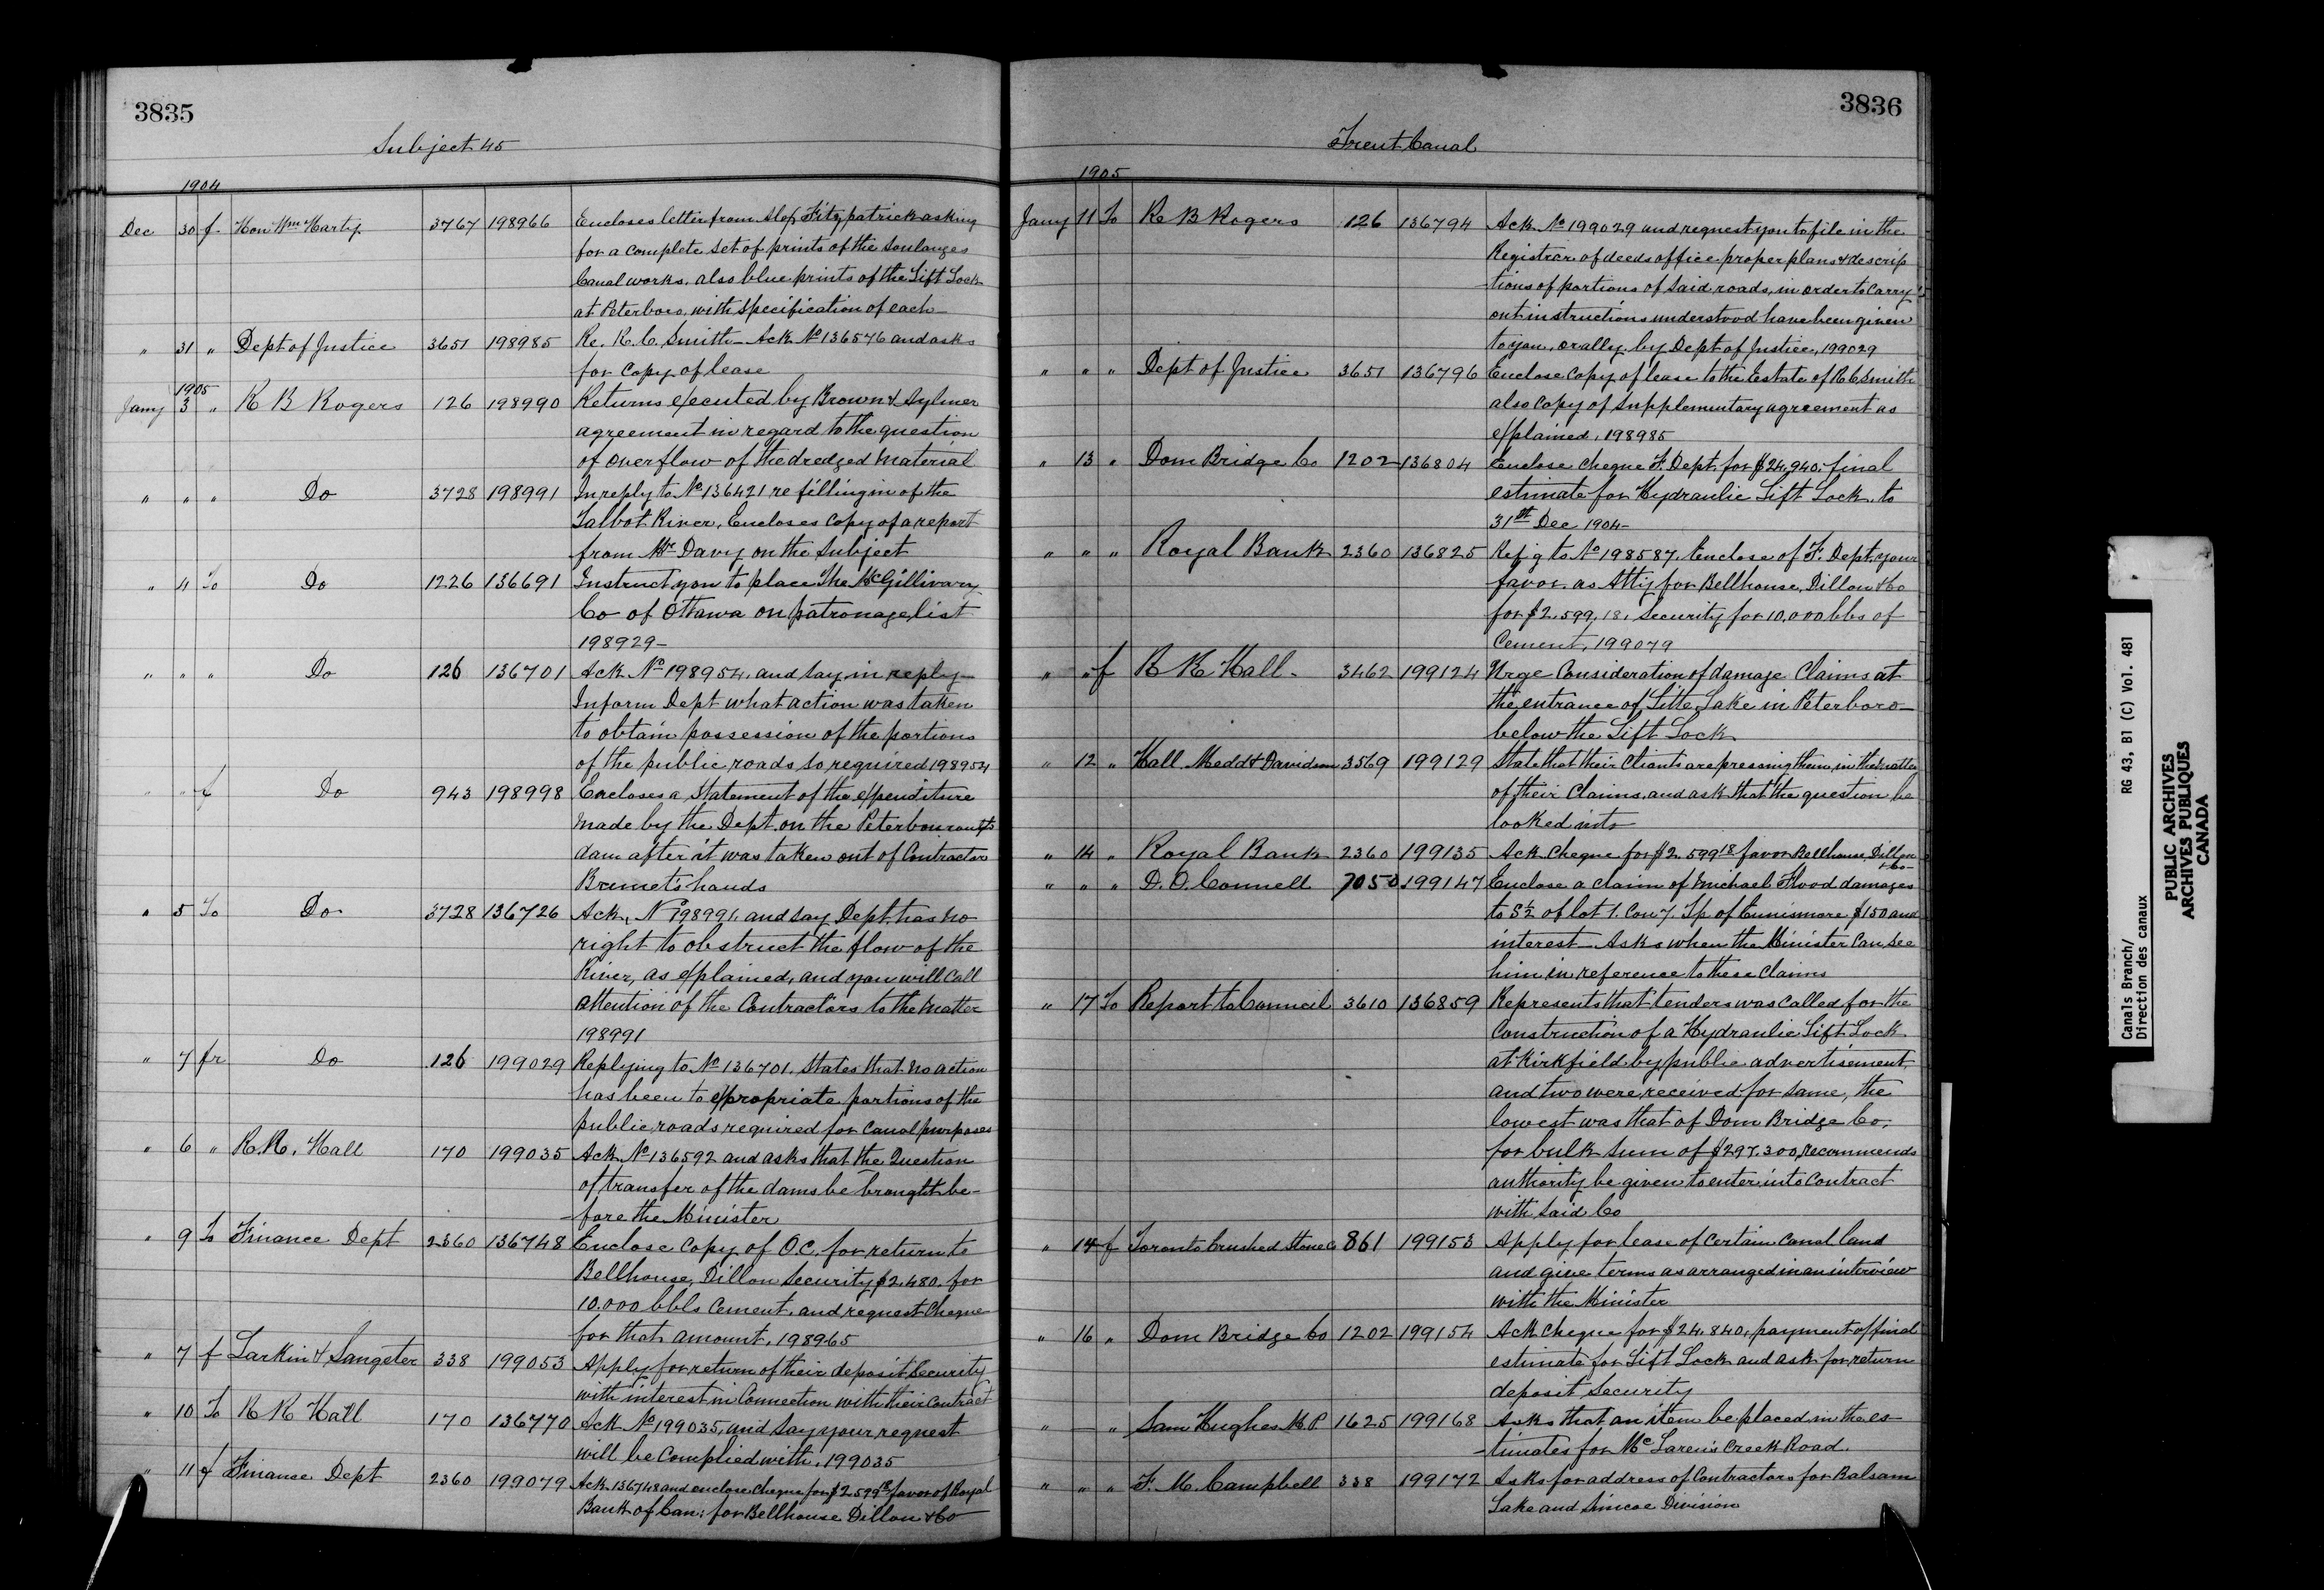 3835
Subject 45
1904
Dec 30 f Hon Wm Harty 3767 198966 Encloses letter from Alex Fitzpatrick asking
for a complete set of prints of the Soulanges
Canal works, also blue prints of the Lift Lock
at Peterboro, with specification of each
" 31 " Dept of Justice 3651 198985 Re. R. C. Smith - Ack No 136576 and asks
for copy of lease
1905
Jany 3 " R B Rogers 126 198990 Returns executed by Brown & Aylmer
agreement in regard to the question
of overflow of the dredged material
" " " Do 3728 198991 In reply to No 136421 re filling in of the
Talbot River, Encloses copy of a report
from Mr Davy on the subject
" 4 To Do 1226 136691 Instruct you to place The McGillivary
Co of Ottawa on patronage list
198929-
" " " Do 126 136701 Ack No 198954, and say, in reply
Inform Dept what action was taken
to obtain possession of the portions
of the public roads, so required 198954
" " f Do 943 198998 Encloses a statement of the expenditure
made by the Dept. on the Peterborough
dam after it was taken out of Contractor
Brunet's hands
" 5 To Do 3728 136726 Ack. No 198991, and say Dept. has no
right to obstruct the flow of the
River, as explained, and you will call
attention of the Contractors to the matter
198991
" 7 fr Do 126 199029 Replying to No 136701. States that no action
has been to expropriate portions of the
public roads required for Canal purposes
" 6 " R. R. Hall 170 199035 Ack No 136592 and asks that the Question
of transfer of the dams be brought be-
-fore the Minister
" 9 To Finance Dept 2360 136748 Enclose copy of O.C. for return to
Bellhouse, Dillon Security $2.480. for
10.000 bbls Cement, and request Cheque
for that amount, 198965
" 7 f Larkin & Sangster 338 199053 Apply for return of their deposit Security
with interest in Connection with their Contract
" 10 To R R Hall 170 136770 Ack No 199035, and say your request
will be complied with, 199035
" 11 f Finance Dept 2360 199079 Ack. 136748 and enclose cheque for $2.599 18 favor of Royal
Bank of Can: for Bellhouse Dillon & Co
3836
Trent Canal
1905
Jany 11 To R B Rogers 126 136794 Ack No 199029 and request you to file in the
Registrar of deeds office proper plans & descrip
-tions of portions of said roads, in order to carry
out instructions understood have been given
to you, orally, by Dept of Justice, 199029
" " " Dept of Justice 3651 136796 Enclose copy of lease to the Estate of R C Smith
also copy of supplementary agreement as
explained, 198985
" 13 " Dom Bridge Co 1202 136804 Enclose cheque F. Dept. for $24,940, final
estimate for Hydraulic Lift Lock, to
31st Dec 1904-
" " " Royal Bank 2360 136825 Refg to No 198587. Enclose of F. Dept. your
favor, as Atty for Bellhouse, Dillon & Co
for $2.599.18, Security for 10.000 bbs of
Cement, 199079
" " f R R Hall 3462 199124 Urge Consideration of damage Claims at
the entrance of Little Lake in Peterboro
below the Lift Lock
" 12 " Hall Medd & Davidson 3569 199129 State that their Clients are pressing them, in the matter
of their Claims, and ask that the question be
looked into
" 14 " Royal Bank 2360 199135 Ack cheque for $2.599 18 favor Bellhouse, Dillon
& Co-
" " " D. O. Connell 7050 199147 Enclose a claim of Michael Flood damages
to S½ of lot 1. Con 7. Tp of Ennismore $150 and
interest - Asks when the Minister can see
him in reference to these Claims
" 17 To Report to Council 3610 136859 Represents that tenders was called for the
Construction of a Hydraulic Lift Lock
at Kirkfield by public advertisement,
and two were received for same, the
lowest was that of Dom Bridge Co,
for bulk sum of $297.300, recommends
authority be given to enter into Contract
with said Co
" 14 f Toronto Crushed Stone Co 861 199153 Apply for lease of certain canal land
and give terms as arranged in an interview
with the Minister
" 16 " Dom Bridge Co 1202 199154 Ack cheque for $24.840, payment of final
estimate for Lift Lock and ask for return
deposit Security
" " Sam Hughes M.P. 1625 199168 Asks that an item be placed in the es-
-timates for McLaren's Creek Road.
" " " F. M. Campbell 338 199172 Asks for address of Contractors for Balsam
Lake and Simcoe Division
Canals Branch/
Direction des canaux
RG 43, B1 (C) Vol. 481
PUBLIC ARCHIVES
ARCHIVES PUBLIQUES
CANADA